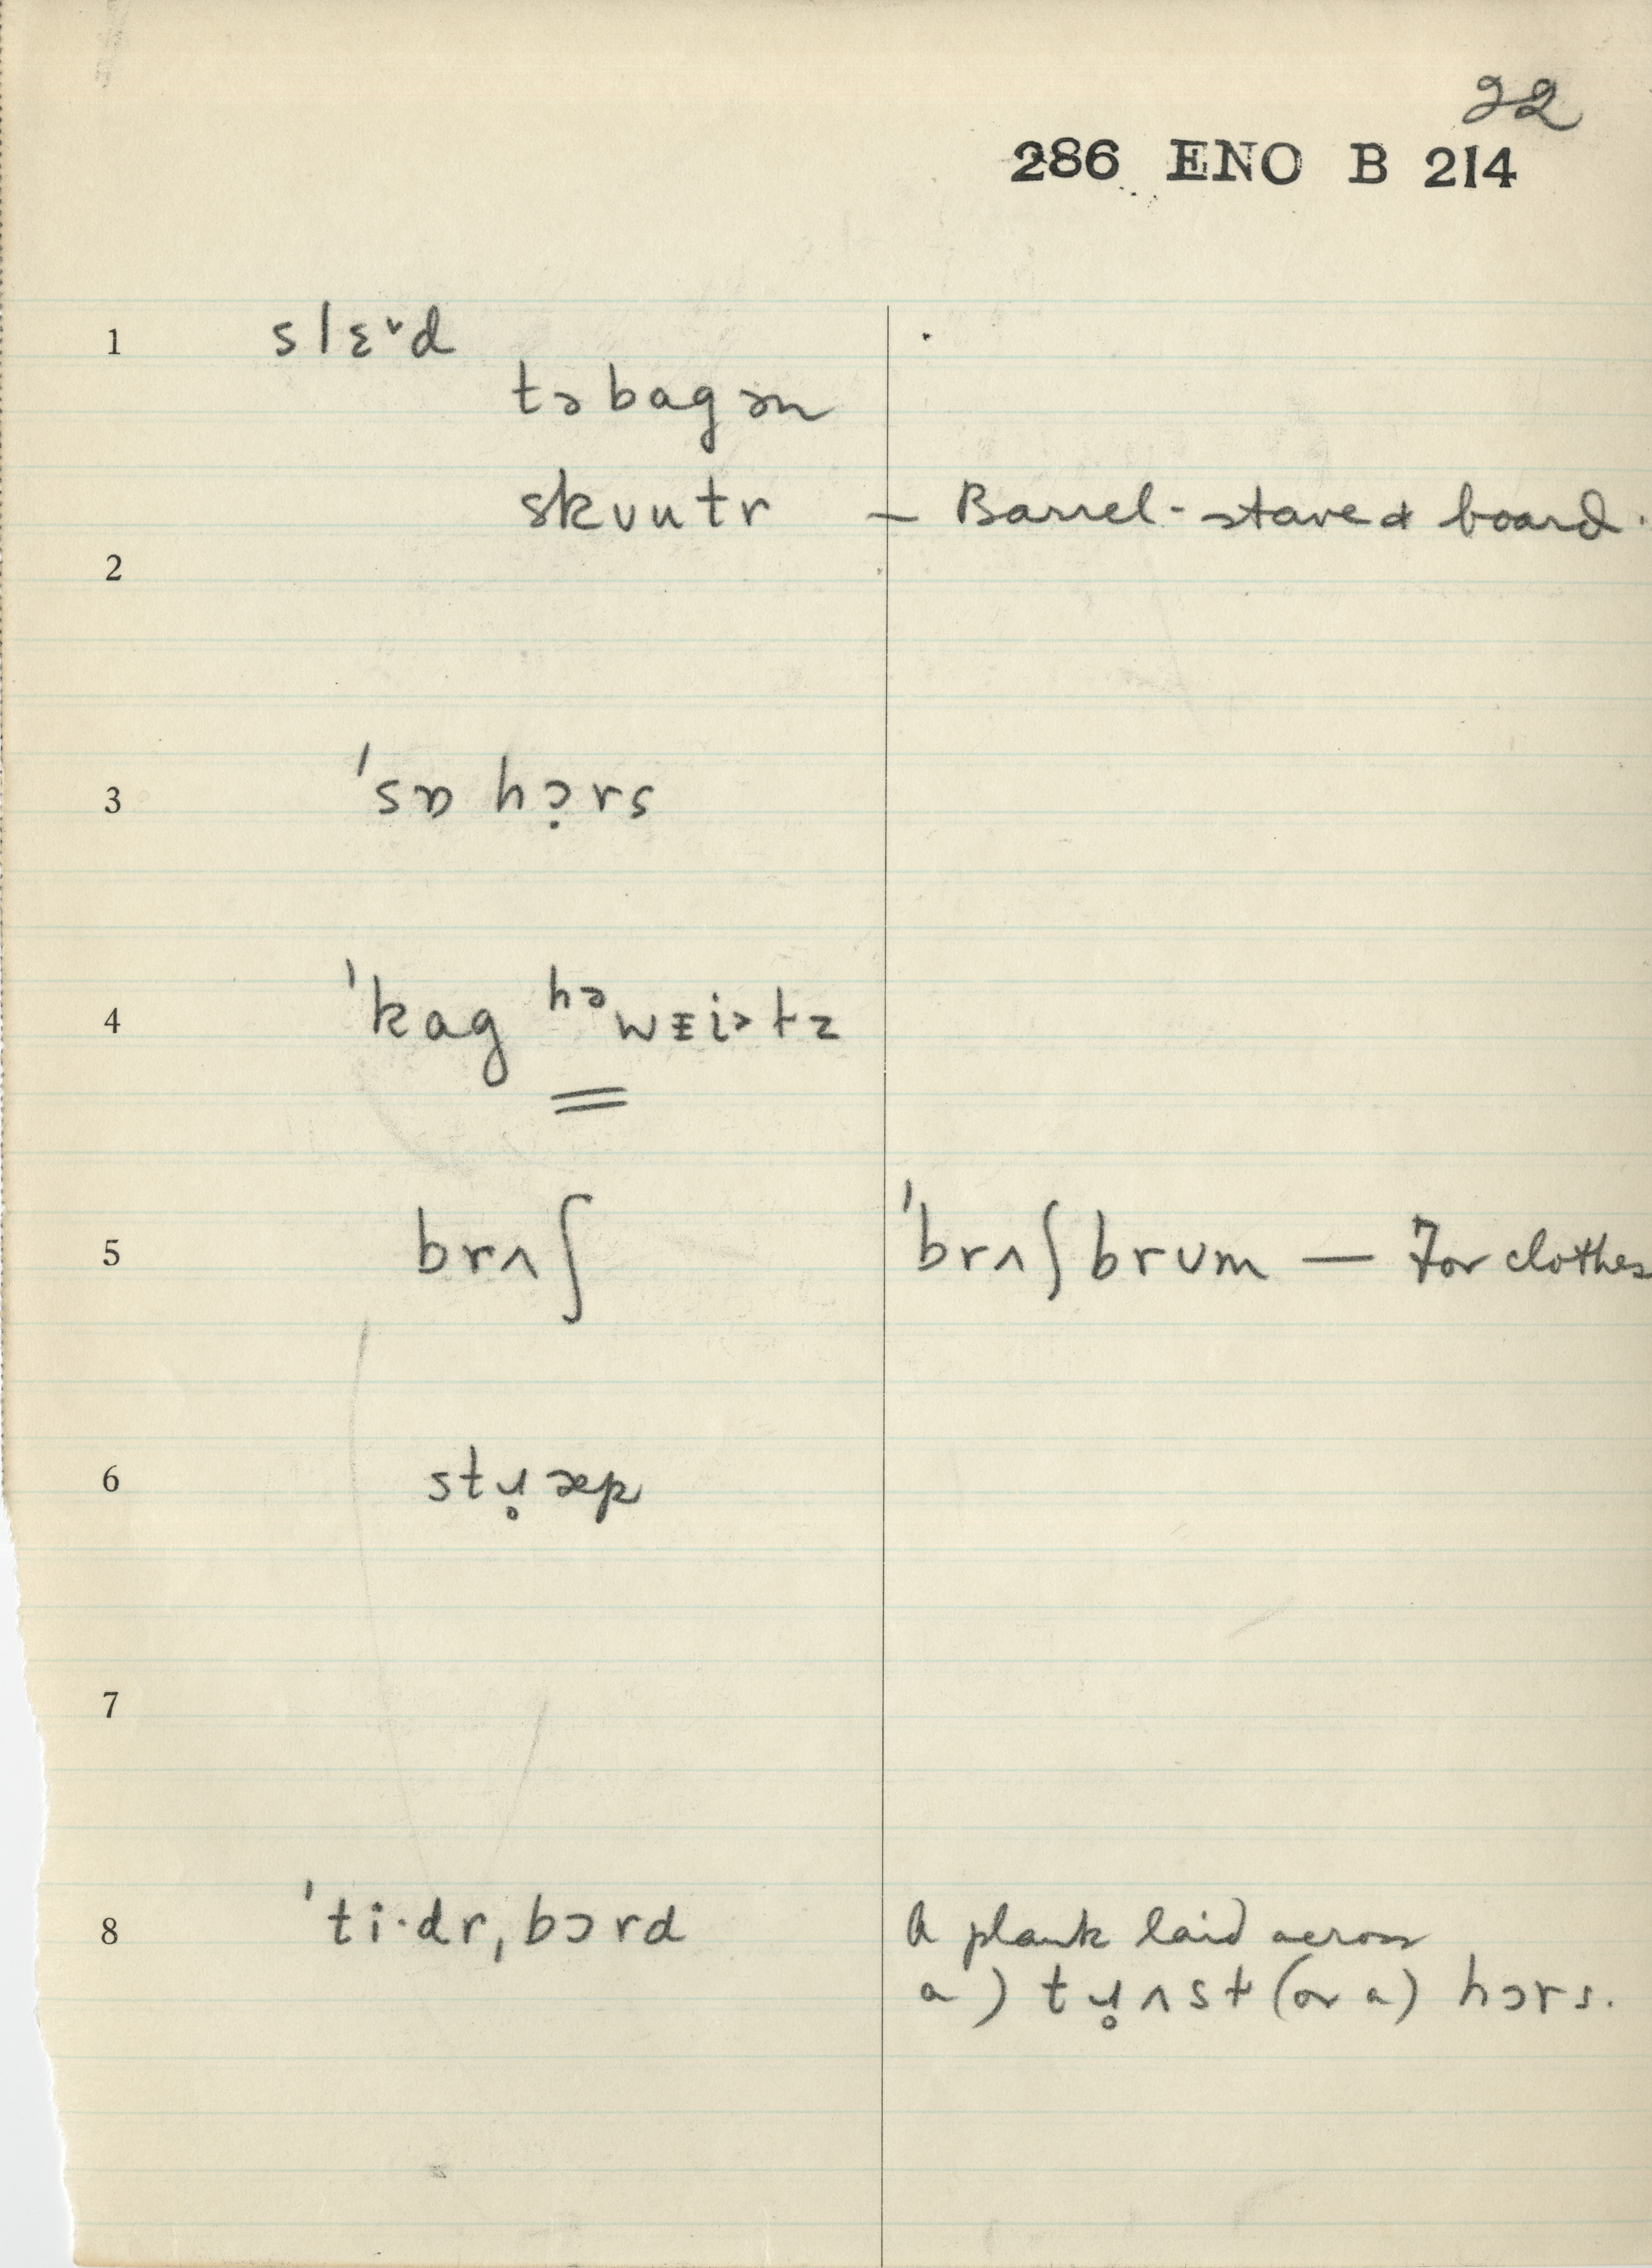 22
286 ENO B 214
1 slɛ˅d
təbagən
skuutr — Barrel-stave & board.
2
3 'sɒ hɔ̣rs
4 'kag həwɛiətz
5 brʌʃ 'brʌʃ brum — For clothes
6 stɹ̥æp
7
8 'ti·dr,bɔrd A plank laid across
a) tɹ̥ʌst (or a) hɔrs.